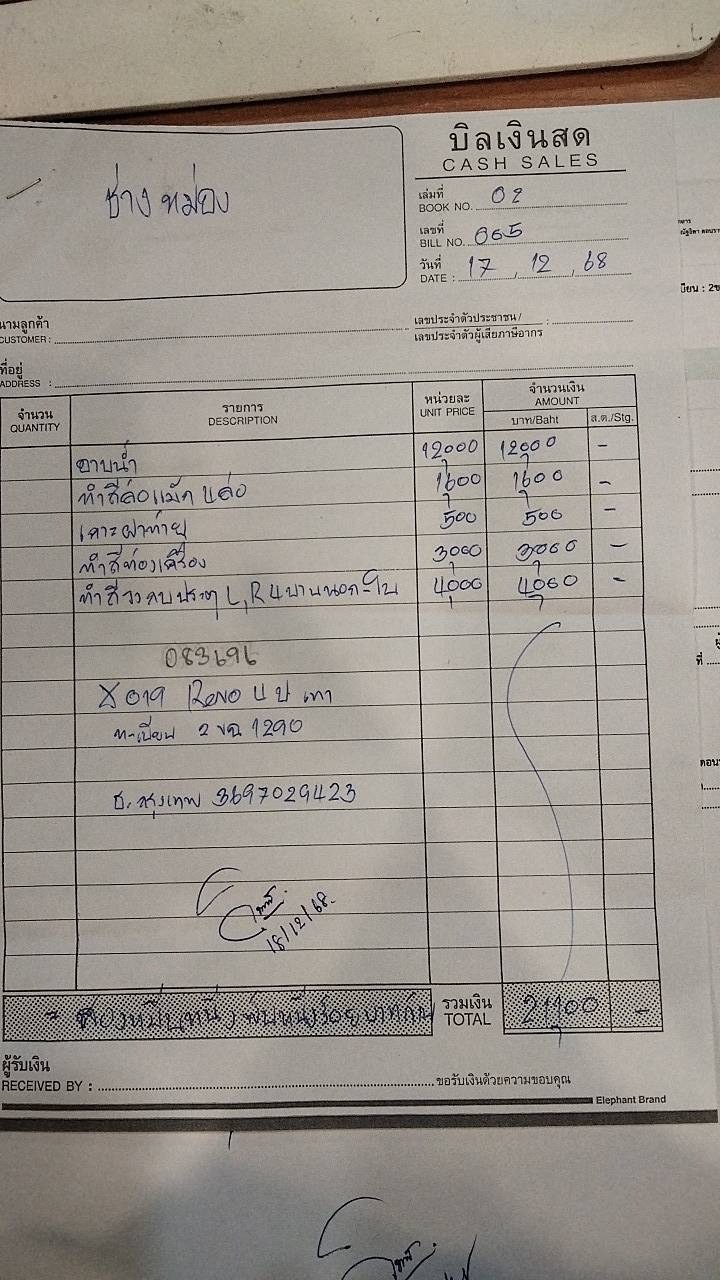 บิลเงินสด
CASH SALES
ช่าง หม่อง
เล่มที่ BOOK NO. 02
เลขที่ BILL NO. 065
วันที่ DATE : 17 , 12 , 68
นามลูกค้า CUSTOMER :
เลขประจำตัวประชาชน / เลขประจำตัวผู้เสียภาษีอากร :
ที่อยู่ ADDRESS :
จำนวน QUANTITY รายการ DESCRIPTION หน่วยละ UNIT PRICE จำนวนเงิน AMOUNT
บาท/Baht ส.ต./Stg.
อาบน้ำ 12000 12000 -
ทำสี 1600 1600 -
เคาะฝาท้าย 500 500 -
ทำสีห้องเครื่อง 3000 3000 -
ทำสี ประตู L,R 4 บาน 4000 4000 -
083696
019 Revo เทา
ทะเบียน 2 1290
ธ. กรุงเทพ 3697029423
18/12/68
= สองหมื่นหนึ่งพันหนึ่งร้อยบาทถ้วน รวมเงิน TOTAL 21100 -
ผู้รับเงิน
RECEIVED BY : ขอรับเงินด้วยความขอบคุณ
Elephant Brand